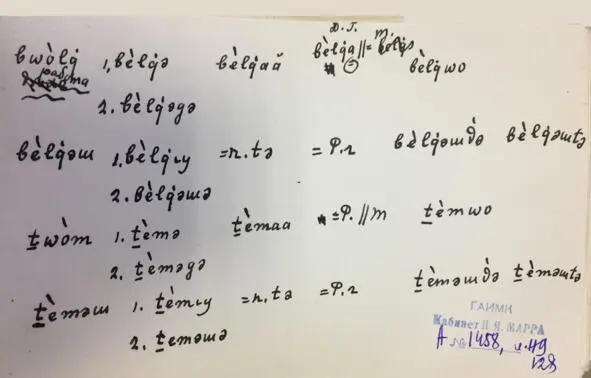 Д. Т.
bwòlq̇ 1. bèlq̇ə bèlq̇aă bèlq̇a // = m. bèlq̇ə bèlq̇wo
2. bèlq̇əgə
bèlq̇əш 1. bèlq̇ιy =n.tə = P.r bèlq̇əшϑə bèlq̇əшtə
2. bèlq̇əшə
t̲wòm 1. t̲èmə t̲èmaa = P. // m t̲èmwo
2. t̲èməgə
t̲èməш 1. t̲èmιy =n.tə =P.r t̲èməшϑə t̲èməшtə
2. t̲eməшə
ГАИМК
Кабинет Н.Я. МАРРА
А № 1458, л. 49
128